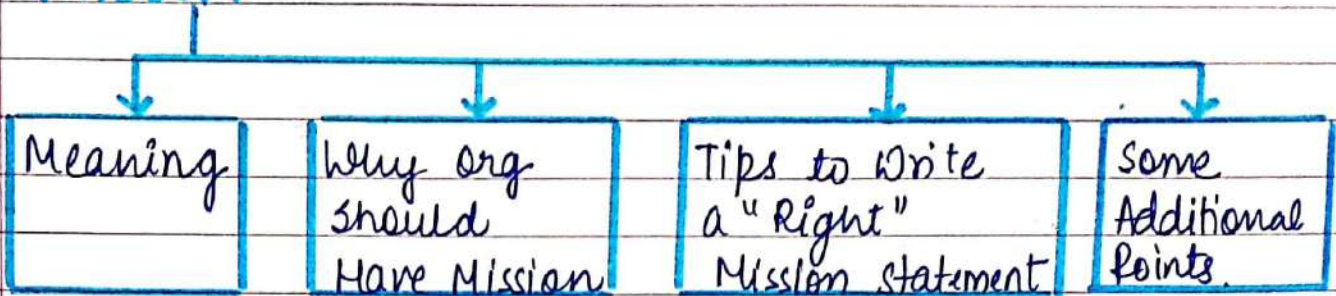 Meaning
Why org
should
Have Mission
Tips to Write
a "Right"
Mission statement
Some
Additional
Points.